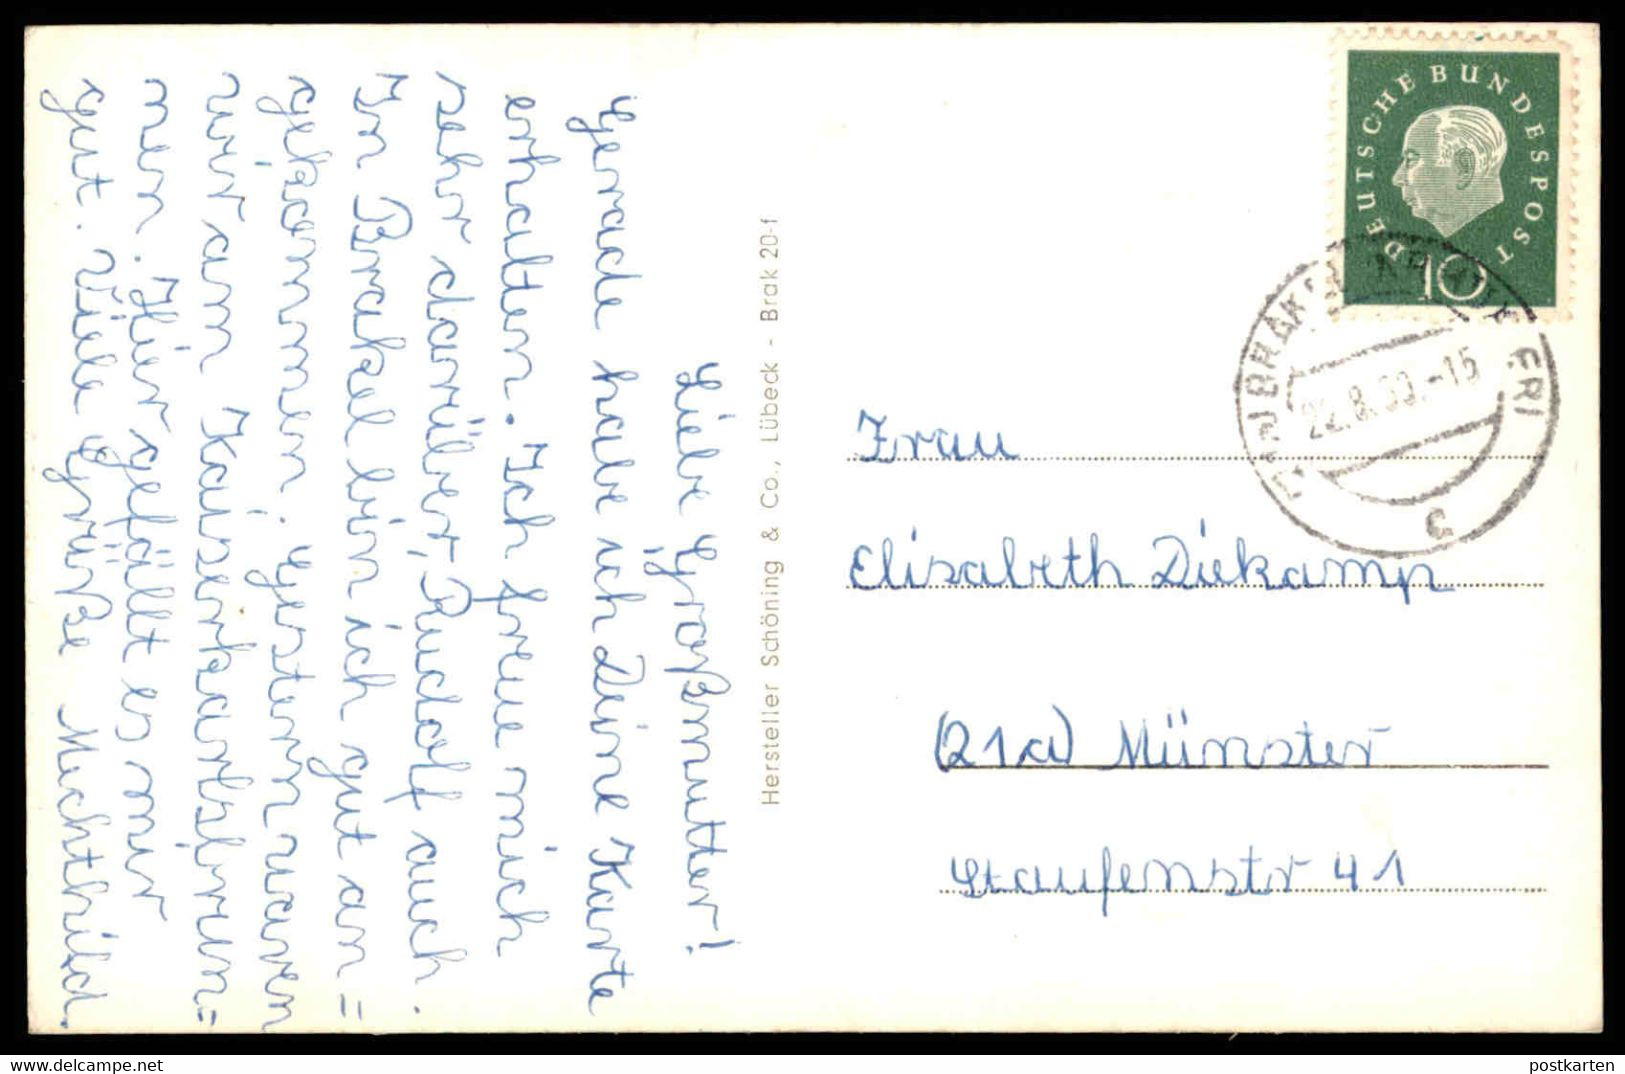 Liebe Großmutter!
Gerade habe ich Deine Karte
erhalten. Ich freue mich
sehr darüber, Rudolf auch.
In Brakel bin ich gut an=
gekommen. Gestern waren
wir am Kaiserkarlsbrun=
nen. Hier gefällt es mir
gut. Viele Grüße Mechthild.
Hersteller Schöning & Co., Lübeck - Brak 20-f
DEUTSCHE BUNDESPOST
10
22.8.60.-15
Frau
Elisabeth Diekamp
(21a) Münster
Staufenstr 41
postkarten